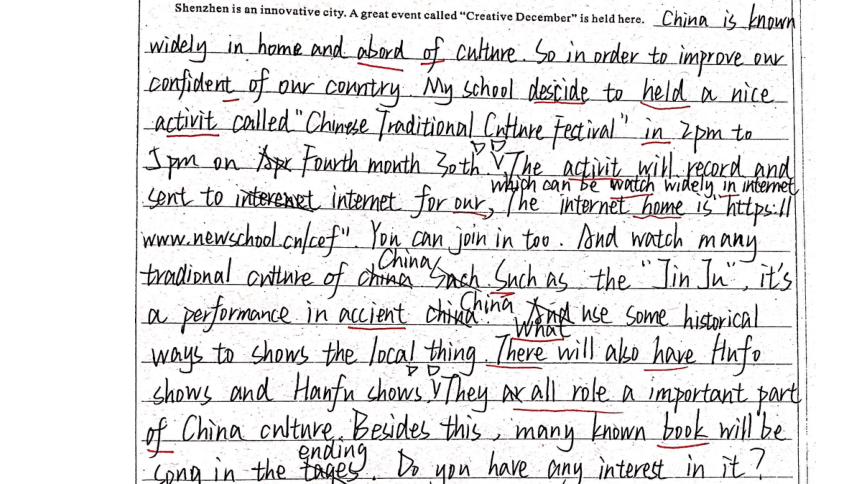 Shenzhen is an innovative city. A great event called "Creative December" is held here. China is known
widely in home and abord of culture. So in order to improve our
confident of our country. My school descide to held a nice
activit called "Chinese Traditional Culture Festival" in 2pm to
5pm on Apr Fourth month 30th. The activit will record and
which can be watch widely in internet
sent to interenet internet for our, The internet home is "https://
www.newschool.cn/cef". You can join in too. And watch many
China
tradional culture of china Sach. Such as the "Jin Ju", it's
China
a performance in accient china. And use some historical
What
ways to shows the local thing. There will also have Hufo
shows and Hanfu shows. They ar all role a important part
of China culture. Besides this, many known book will be
ending
song in the tages. Do you have any interest in it?